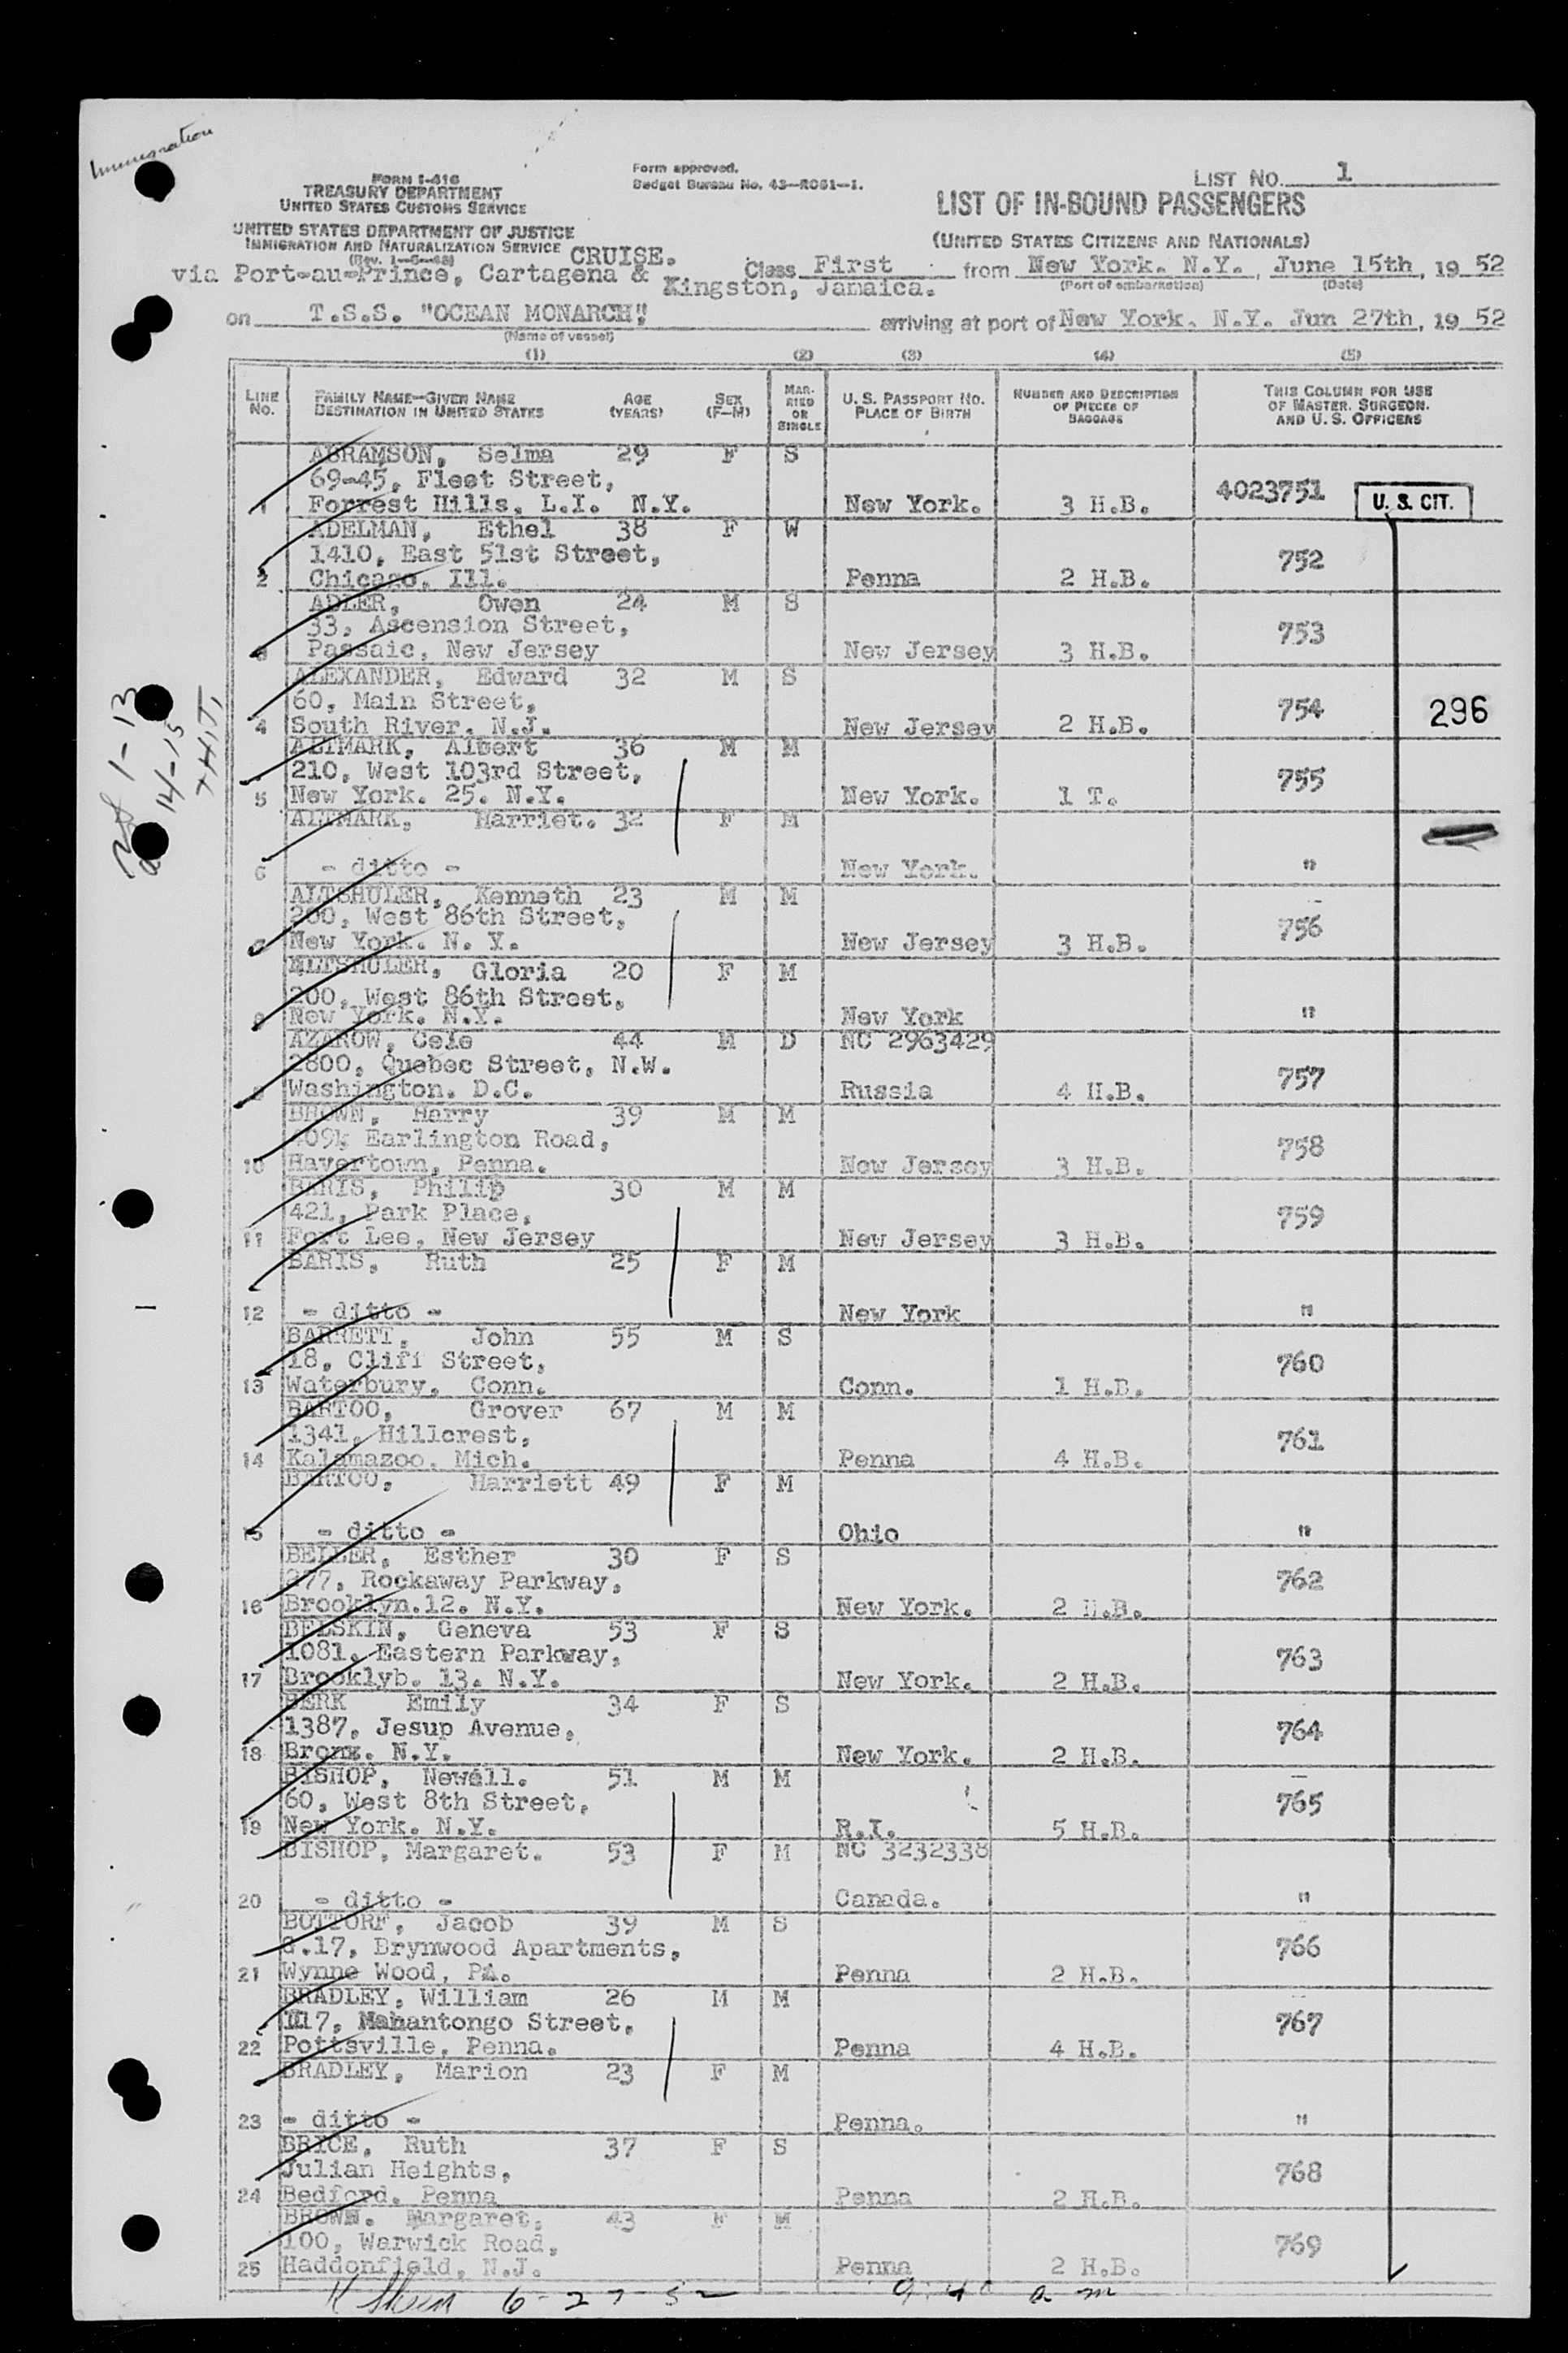 Immigration
FORM I-416
TREASURY DEPARTMENT
UNITED STATES CUSTOMS SERVICE
UNITED STATES DEPARTMENT OF JUSTICE
IMMIGRATION AND NATURALIZATION SERVICE
(Rev. 1-5-48)
Form approved.
Budget Bureau No. 43—R061—1.
LIST NO. 1
LIST OF IN-BOUND PASSENGERS
(UNITED STATES CITIZENS AND NATIONALS)
CRUISE.
via Port-au-Prince, Cartagena & Kingston, Jamaica.
Class First from New York. N.Y., June 15th, 19 52
(Port of embarkation) (Date)
on T.S.S. "OCEAN MONARCH" arriving at port of New York. N.Y. Jun 27th, 19 52
(Name of vessel)
(1) (2) (3) (4) (5)
LINE NO. FAMILY NAME—GIVEN NAME DESTINATION IN UNITED STATES AGE (YEARS) SEX (F—M) MARRIED OR SINGLE U. S. PASSPORT NO. PLACE OF BIRTH NUMBER AND DESCRIPTION OF PIECES OF BAGGAGE THIS COLUMN FOR USE OF MASTER, SURGEON, AND U. S. OFFICERS
ABRAMSON, Selma 29 F S
69-45, Fleet Street, 4023751 U. S. CIT.
1 Forrest Hills, L.I. N.Y. New York. 3 H.B.
ADELMAN, Ethel 38 F W
1410, East 51st Street, 752
2 Chicago, Ill. Penna 2 H.B.
ADLER, Owen 24 M S
33, Ascension Street, 753
3 Passaic, New Jersey New Jersey 3 H.B.
ALEXANDER, Edward 32 M S
60, Main Street, 754 296
4 South River. N.J. New Jersey 2 H.B.
ALTMARK, Albert 36 M M
210, West 103rd Street, 755
5 New York. 25. N.Y. New York. 1 T.
ALTMARK, Harriet. 32 F M
6 - ditto - New York. "
ALTSHULER, Kenneth 23 M M
200, West 86th Street, 756
7 New York. N. Y. New Jersey 3 H.B.
ALTSHULER, Gloria 20 F M
200, West 86th Street,
8 New York. N.Y. New York "
AZAROW, Cele 44 M D NC 2963429
2800, Quebec Street, N.W. 757
9 Washington. D.C. Russia 4 H.B.
BROWN, Harry 39 M M
Earlington Road, 758
10 Havertown, Penna. New Jersey 3 H.B.
BARIS, Philip 30 M M
421, Park Place, 759
11 Fort Lee, New Jersey New Jersey 3 H.B.
BARIS, Ruth 25 F M
12 - ditto - New York "
BARRETT, John 55 M S
18, Cliff Street, 760
13 Waterbury, Conn. Conn. 1 H.B.
BARTOO, Grover 67 M M
1341, Hillcrest, 761
14 Kalamazoo, Mich. Penna 4 H.B.
BARTOO, Harriett 49 F M
15 - ditto - Ohio "
BELLER, Esther 30 F S
277, Rockaway Parkway, 762
16 Brooklyn.12. N.Y. New York. 2 H.B.
BELSKIN, Geneva 53 F S
1081, Eastern Parkway, 763
17 Brooklyb. 13. N.Y. New York. 2 H.B.
BERK Emily 34 F S
1387, Jesup Avenue, 764
18 Bronx. N.Y. New York. 2 H.B.
BISHOP, Newell. 51 M M
60, West 8th Street, 765
19 New York. N.Y. R.I. 5 H.B.
BISHOP, Margaret. 53 F M NC 3232338
20 - ditto - Canada. "
BOTTORF, Jacob 39 M S
G.17, Brynwood Apartments, 766
21 Wynne Wood, PA. Penna 2 H.B.
BRADLEY, William 26 M M
Mahantongo Street, 767
22 Pottsville, Penna. Penna 4 H.B.
BRADLEY, Marion 23 F M
23 - ditto - Penna. "
BRICE, Ruth 37 F S
Julian Heights, 768
24 Bedford. Penna Penna 2 H.B.
BROWN. Margaret. 43 F M
100, Warwick Road, 769
25 Haddonfield, N.J. Penna 2 H.B.
6-27-52 9:40 a m
1-13
14-15